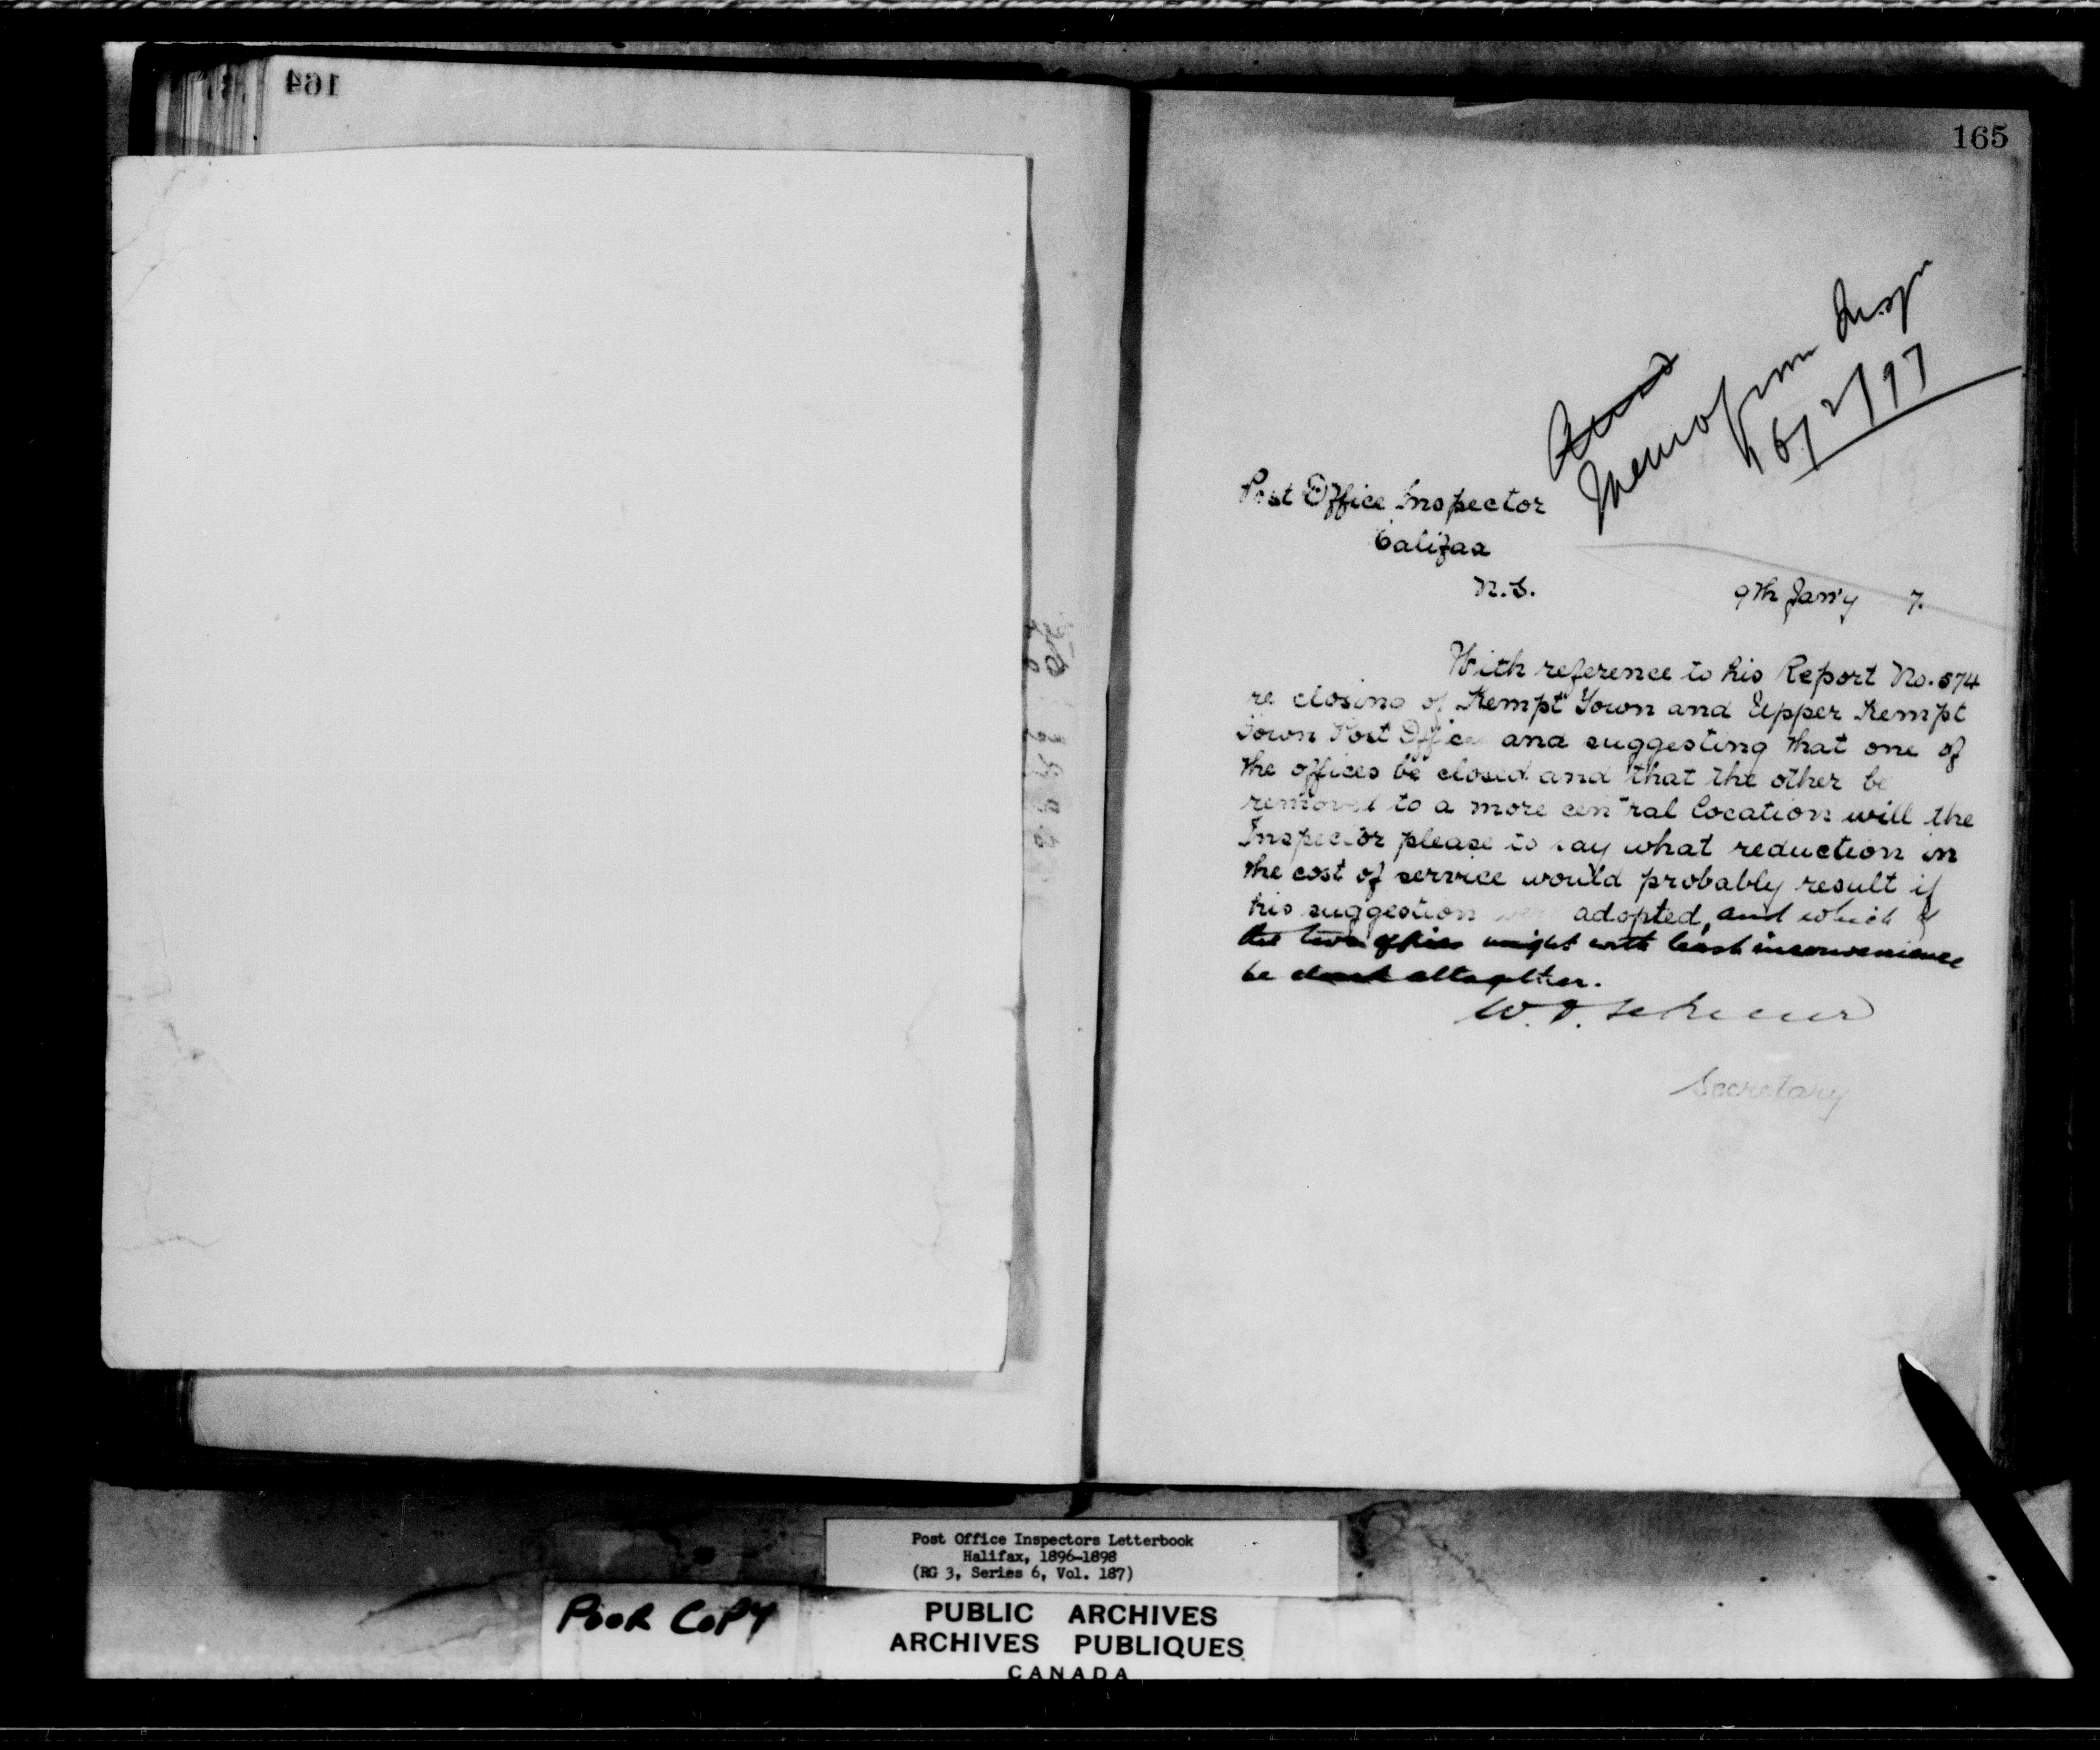 164
165
Memo from Insp
16/2/97
Post Office Inspector
Halifax
N.S.
9th Jan'y 7.
With reference to his Report No. 574
re closing of Kempt Town and Upper Kempt
Town Post Office and suggesting that one of
the offices be closed and that the other be
removed to a more central location will the
Inspector please to say what reduction in
the cost of service would probably result if
his suggestion were adopted, and which of
the two offices might with least inconvenience
be closed altogether.
Secretary
Post Office Inspectors Letterbook
Halifax, 1896-1898
(RG 3, Series 6, Vol. 187)
POOR COPY
PUBLIC ARCHIVES
ARCHIVES PUBLIQUES
CANADA